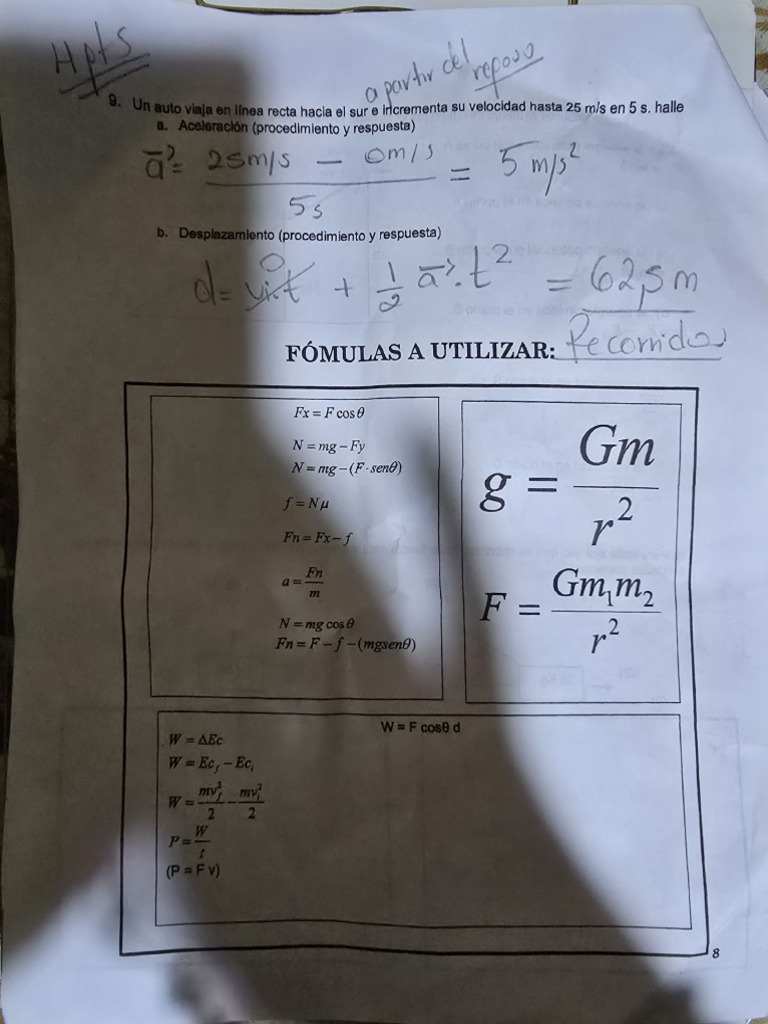 Hpts
a partir del reposo
9. Un auto viaja en línea recta hacia el sur e incrementa su velocidad hasta 25 m/s en 5 s. halle
a. Aceleración (procedimiento y respuesta)
a⃗ = (25m/s − 0m/s) / 5s = 5 m/s²
b. Desplazamiento (procedimiento y respuesta)
d = vi.t 0 + 1/2 a⃗.t² = 62,5 m
FÓMULAS A UTILIZAR: Recorrido
Fx = F cosθ
N = mg − Fy
N = mg − (F · senθ)
f = Nμ
Fn = Fx − f
a = Fn / m
N = mg cosθ
Fn = F − f − (mgsenθ)
g = Gm / r²
F = Gm₁m₂ / r²
W = F cosθ d
W = ΔEc
W = Ec_f − Ec_i
W = mv_f² / 2 − mv_i² / 2
P = W / t
(P = F v)
8